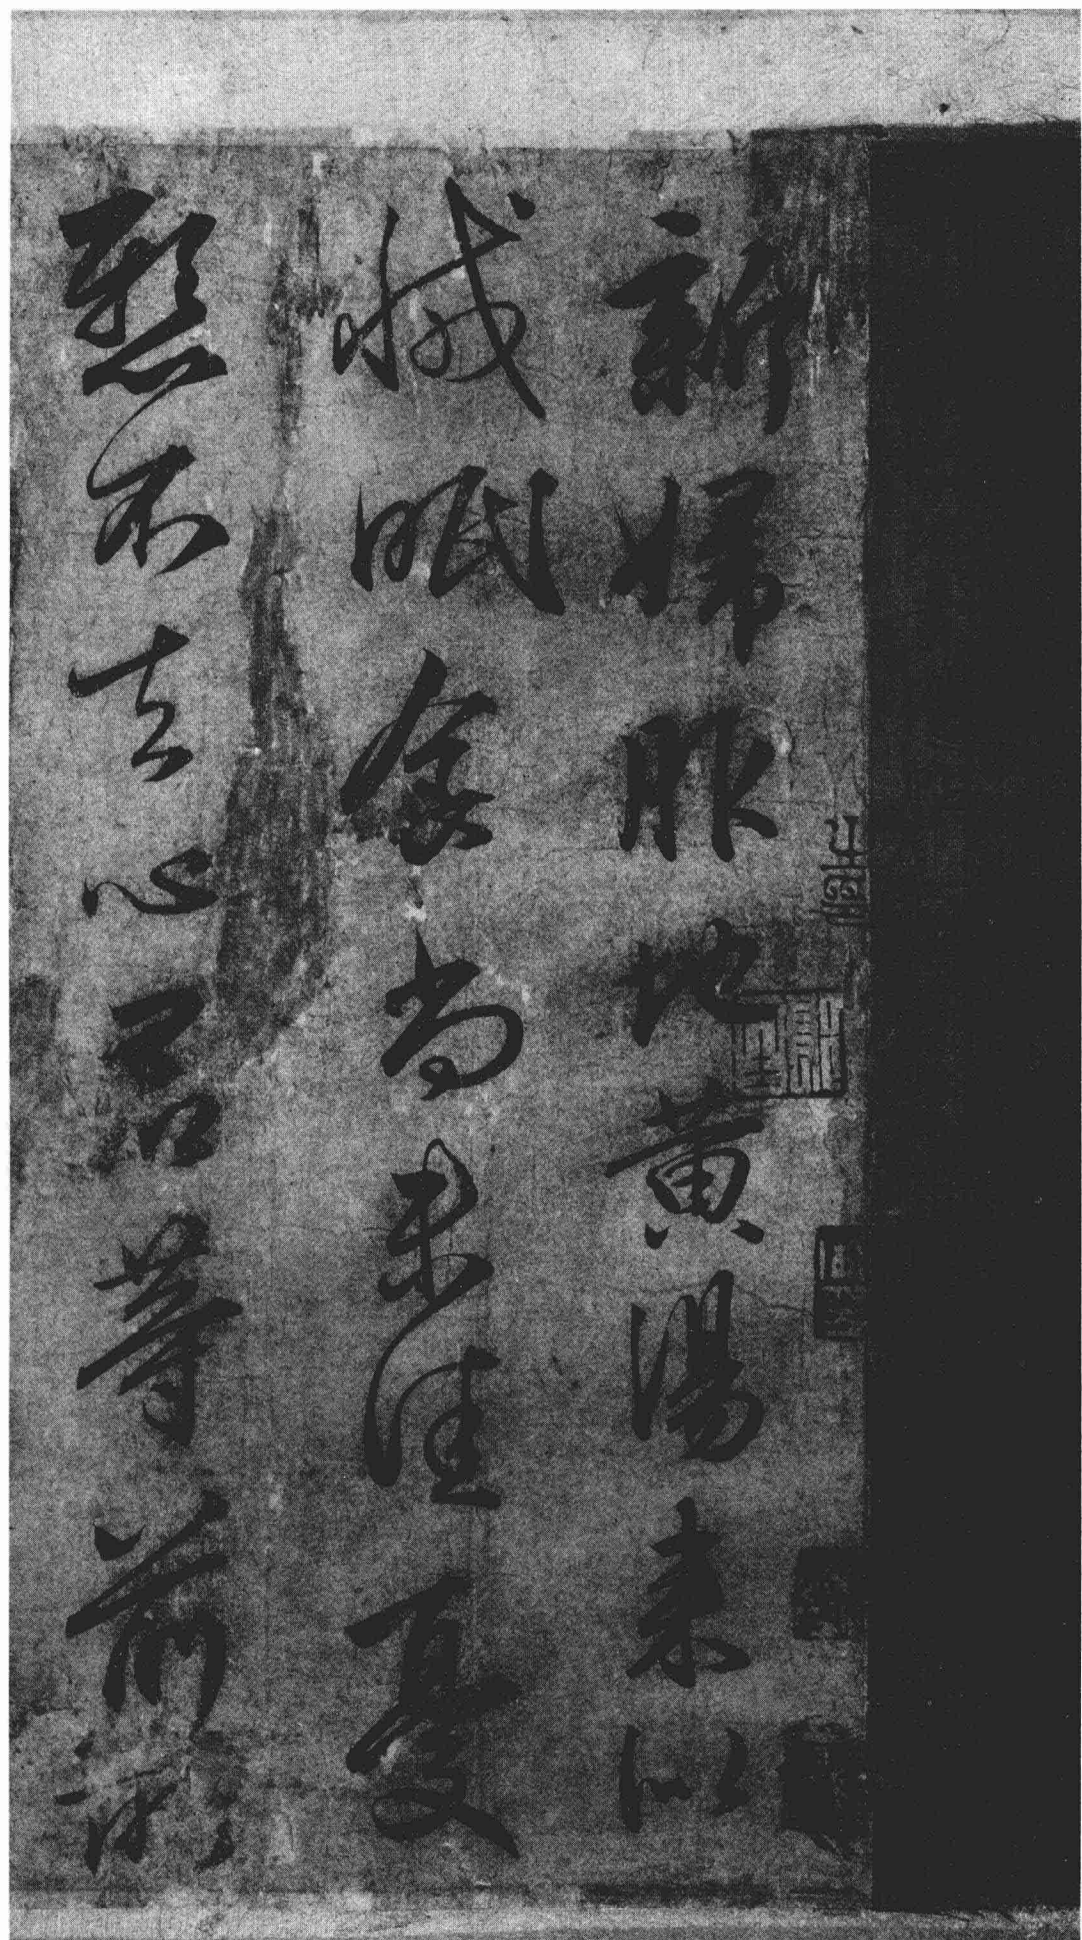 新婦服地黃湯來似
減眠食尚未佳憂
懸不去心君等前所